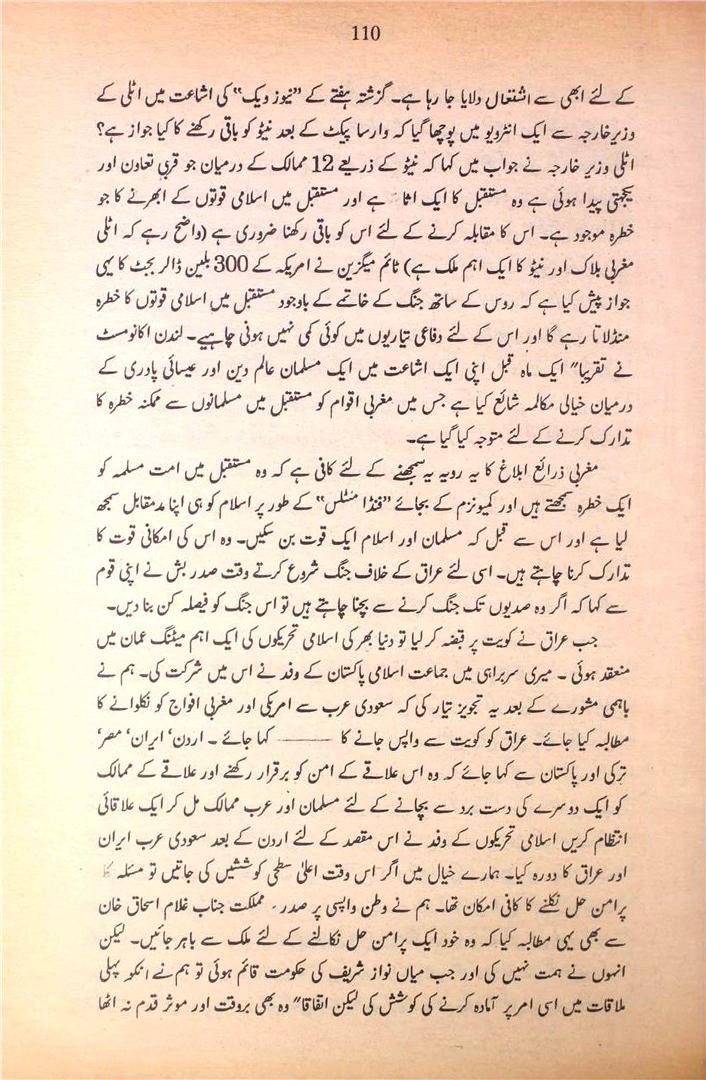 110
کے لئے ابھی سے اشتعال دلایا جا رہا ہے۔ گزشتہ ہفتے کے "نیوز ویک" کی اشاعت میں اٹلی کے
وزیرخارجہ سے ایک انٹرویو میں پوچھا گیا کہ وارسا پیکٹ کے بعد نیٹو کو باقی رکھنے کا کیا جواز ہے؟
اٹلی وزیر خارجہ نے جواب میں کہا کہ نیٹو کے ذریعے 12 ممالک کے درمیان جو قربی تعاون اور
یکجہتی پیدا ہوئی ہے وہ مستقبل کا ایک ہے اور مستقبل میں اسلامی قوتوں کے ابھرنے کا جو
خطرہ موجود ہے۔ اس کا مقابلہ کرنے کے لئے اس کو باقی رکھنا ضروری ہے (واضح رہے کہ اٹلی
مغربی بلاک اور نیٹو کا ایک اہم ملک ہے) ٹائم میگزین نے امریکہ کے 300 بلین ڈالر بجٹ کا یہی
جواز پیش کیا ہے کہ روس کے ساتھ جنگ کے خاتمے کے باوجود مستقبل میں اسلامی قوتوں کا خطرہ
منڈلاتا رہے گا اور اس کے لئے دفاعی تیاریوں میں کوئی کمی نہیں ہونی چاہیے۔ لندن اکانومسٹ
نے تقریبا" ایک ماہ قبل اپنی ایک اشاعت میں ایک مسلمان عالم دین اور عیسائی پادری کے
درمیان خیالی مکالمہ شائع کیا ہے جس میں مغربی اقوام کو مستقبل میں مسلمانوں سے ممکنہ خطرہ کا
تدارک کرنے کے لئے متوجہ کیا گیا ہے۔
مغربی ذرائع ابلاغ کا یہ رویہ یہ سمجھنے کے لئے کافی ہے کہ وہ مستقبل میں امت مسلمہ کو
ایک خطرہ سمجھتے ہیں اور کمیونزم کے بجائے "فنڈا منٹلس" کے طور پر اسلام کو ہی اپنا مدمقابل سمجھ
لیا ہے اور اس سے قبل کہ مسلمان اور اسلام ایک قوت بن سکیں۔ وہ اس کی امکانی قوت کا
تدارک کرنا چاہتے ہیں۔ اسی لئے عراق کے خلاف جنگ شروع کرتے وقت صدر بش نے اپنی قوم
سے کہا کہ اگر وہ صدیوں تک جنگ کرنے سے بچنا چاہتے ہیں تو اس جنگ کو فیصلہ کن بنا دیں۔
جب عراق نے کویت پر قبضہ کر لیا تو دنیا بھر کی اسلامی تحریکوں کی ایک اہم میٹنگ عمان میں
منعقد ہوئی ۔ میری سربراہی میں جماعت اسلامی پاکستان کے وفد نے اس میں شرکت کی۔ ہم نے
باہمی مشورے کے بعد یہ تجویز تیار کی کہ سعودی عرب سے امریکی اور مغربی افواج کو نکلوانے کا
مطالبہ کیا جائے۔ عراق کو کویت سے واپس جانے کا ——— کہا جائے ۔ اردن' ایران' مصر'
ترکی اور پاکستان سے کہا جائے کہ وہ اس علاقے کے امن کو برقرار رکھنے اور علاقے کے ممالک
کو ایک دوسرے کی دست برد سے بچانے کے لئے مسلمان اور عرب ممالک مل کر ایک علاقائی
انتظام کریں اسلامی تحریکوں کے وفد نے اس مقصد کے لئے اردن کے بعد سعودی عرب ایران
اور عراق کا دورہ کیا۔ ہمارے خیال میں اگر اس وقت اعلیٰ سطحی کوششیں کی جاتیں تو مسئلہ کا
پرامن حل نکلنے کا کافی امکان تھا۔ ہم نے وطن واپسی پر صدر مملکت جناب غلام اسحاق خان
سے بھی یہی مطالبہ کیا کہ وہ خود ایک پرامن حل نکالنے کے لئے ملک سے باہر جائیں۔ لیکن
انہوں نے ہمت نہیں کی اور جب میاں نواز شریف کی حکومت قائم ہوئی تو ہم نے انکو پہلی
ملاقات میں اسی امر پر آمادہ کرنے کی کوشش کی لیکن اتفاقا" وہ بھی بروقت اور موثر قدم نہ اٹھا